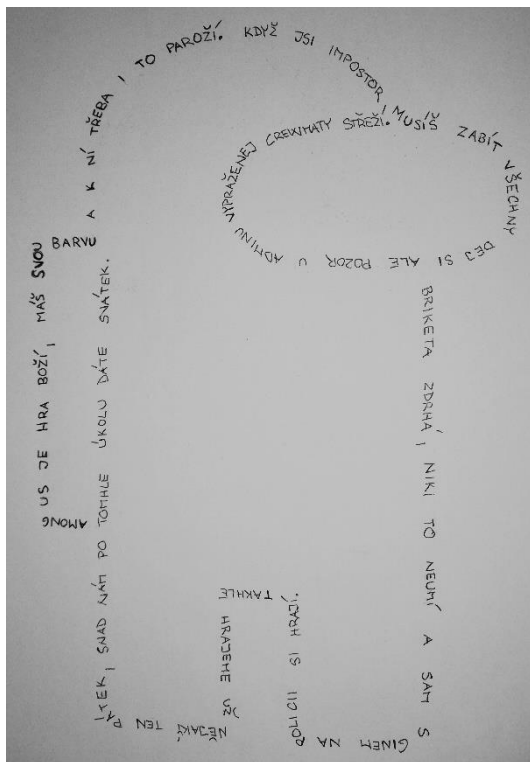 AMONG
US JE HRA BOŽÍ, MÁŠ SVOU
BARVU
A K NÍ TŘEBA I TO PAROŽÍ. KDYŽ JSI IMPOSTOR, MUSÍŠ ZABÍT VŠECHNY
DEJ SI ALE POZOR U ADMINU VYPRAŽENEJ CREWMATY STŘEŽÍ.
BRIKETA ZDRHÁ, NIKI TO NEUMÍ A SAM S
GINEM NA
POLICII SI HRAJÍ.
TAKHLE
HRAJEME UŽ
NĚJAKÍ TEN PÁTEK, SNAD NÁM PO TOMHLE ÚKOLU DÁTE SVÁTEK.